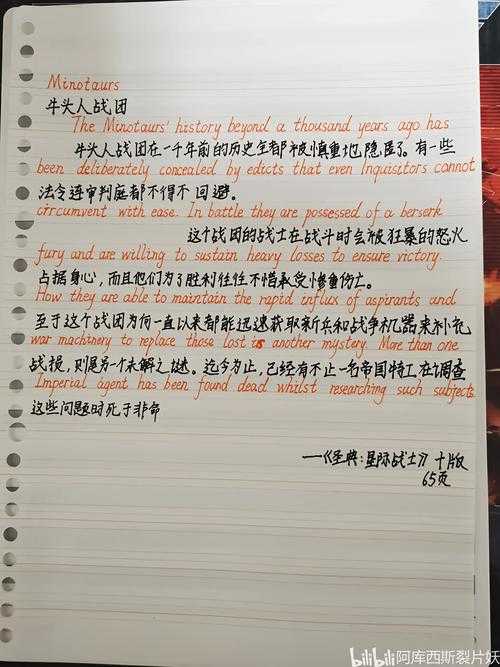 Minotaurs
牛头人战团
The Minotaurs' history beyond a thousand years ago has
牛头人战团在一千年前的历史全都被慎重地隐匿了。有一些
been deliberately concealed by edicts that even Inquisitors cannot
法令连审判庭都不得不回避。
circumvent with ease. In battle they are possessed of a berserk
这个战团的战士在战斗时会被狂暴的怒火
fury and are willing to sustain heavy losses to ensure victory.
占据身心,而且他们为了胜利往往不惜承受惨重伤亡。
How they are able to maintain the rapid influx of aspirants and
至于这个战团为何一直以来都能迅速获取新兵和战争机器来补充
war machinery to replace those lost is another mystery. More than one
战损,则是另一个未解之谜。迄今为止,已经有不止一名帝国特工在调查
Imperial agent has been found dead whilst researching such subjects.
这些问题时死于非命
——《圣典:星际战士》十版
65页
bilibili 阿库西斯裂片妖